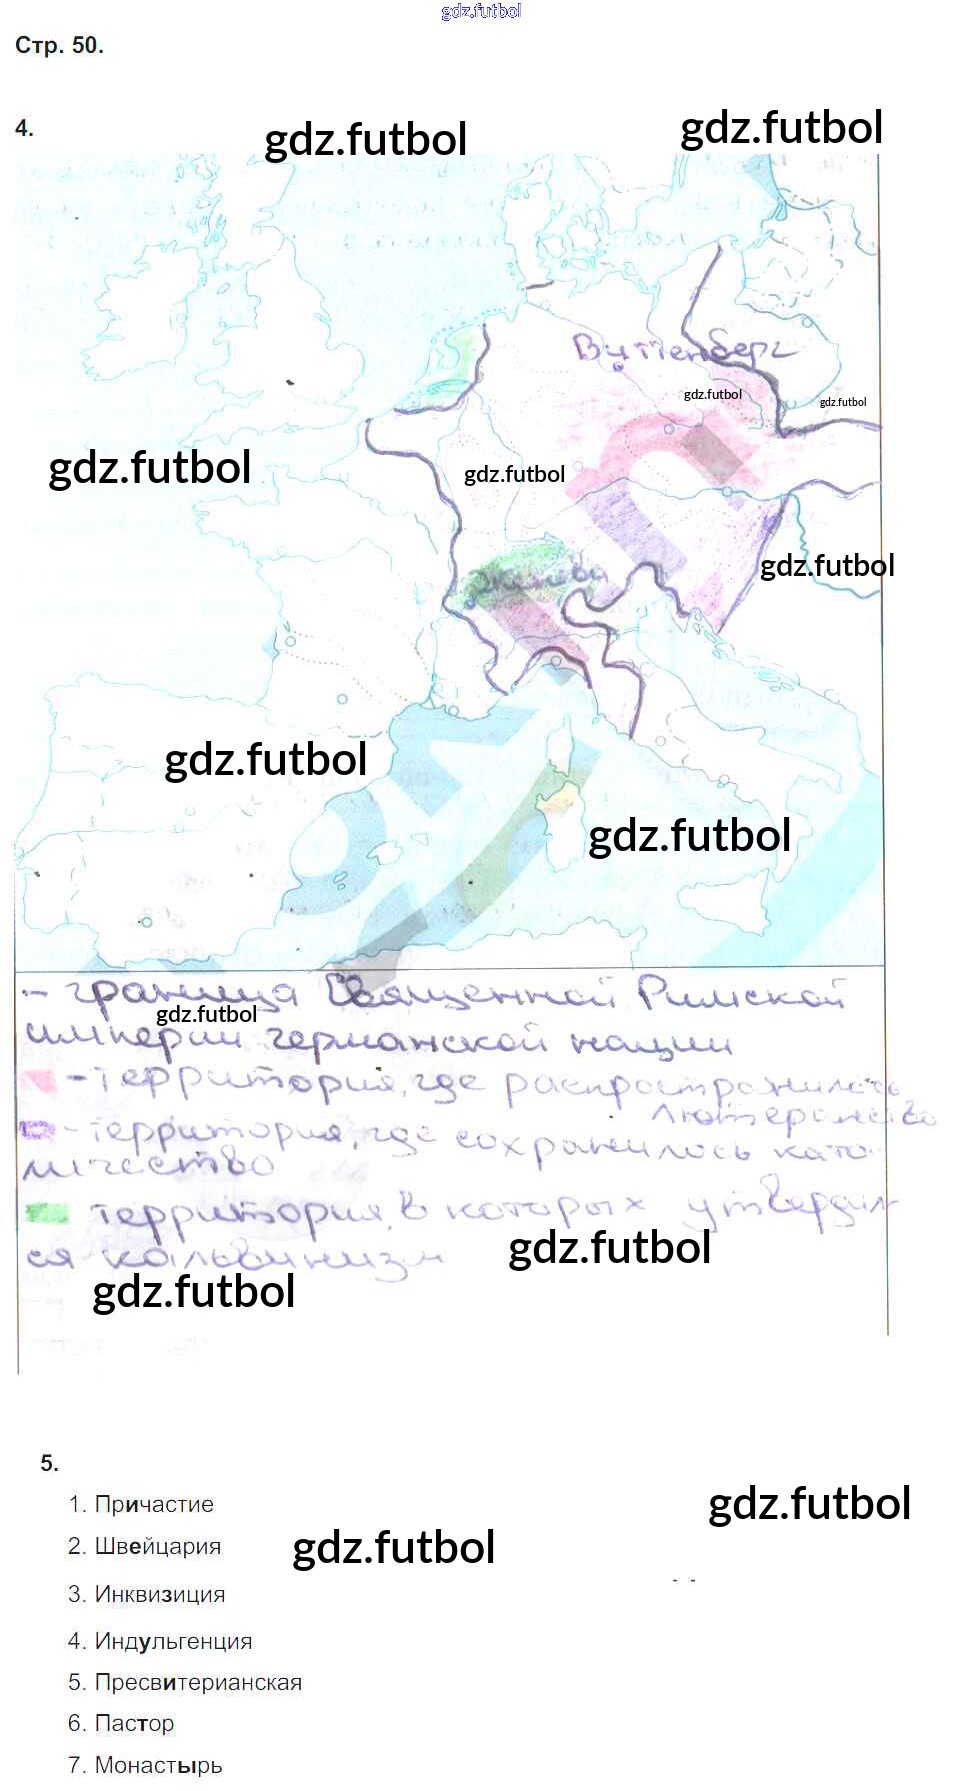 gdz.futbol
Стр. 50.
4.
gdz.futbol
gdz.futbol
Виттенберг
gdz.futbol
gdz.futbol
gdz.futbol
gdz.futbol
gdz.futbol
Женева
gdz.futbol
gdz.futbol
– граница Священной Римской
gdz.futbol
империи германской нации
– территория, где распространилось
лютеранство
– территория, где сохранилось като-
личество
территория, в которых утвердил
ся кальвинизм
gdz.futbol
gdz.futbol
5.
1. Причастие
gdz.futbol
2. Швейцария
gdz.futbol
3. Инквизиция
4. Индульгенция
5. Пресвитерианская
6. Пастор
7. Монастырь